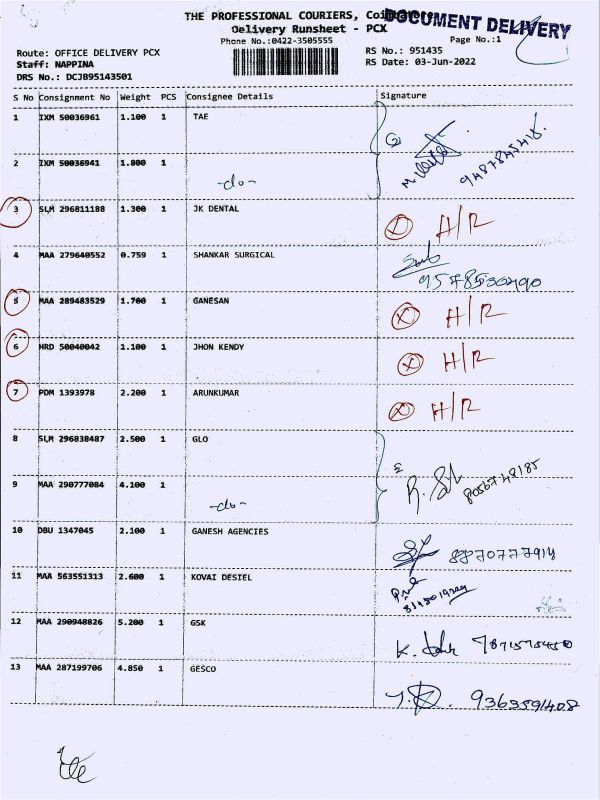 THE PROFESSIONAL COURIERS,
DOCUMENT DELIVERY
Delivery Runsheet - PCX
Phone No.:0422-3505555 Page No.:1
Route: OFFICE DELIVERY PCX RS No.: 951435
Staff: NAPPINA RS Date: 03-Jun-2022
DRS No.: DCJB95143501
S No Consignment No Weight PCS Consignee Details Signature
1 IXM 50036961 1.100 1 TAE
2 IXM 50036941 1.800 1
-do-
9487845418
3 SLM 296811188 1.300 1 JK DENTAL
X H/R
4 MAA 279640552 0.759 1 SHANKAR SURGICAL
9578530490
5 MAA 289483529 1.700 1 GANESAN
X H/R
6 HRD 50040042 1.100 1 JHON KENDY
X H/R
7 PDM 1393978 2.200 1 ARUNKUMAR
X H/R
8 SLM 296838487 2.500 1 GLO
9 MAA 290777084 4.100 1
-do-
8056748185
10 DBU 1347045 2.100 1 GANESH AGENCIES
8870777914
11 MAA 563551313 2.600 1 KOVAI DESIEL
12 MAA 290948826 5.200 1 GSK
9871575450
13 MAA 287199706 4.850 1 GESCO
9363591408